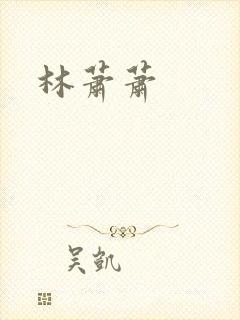 林萧萧
吴凯